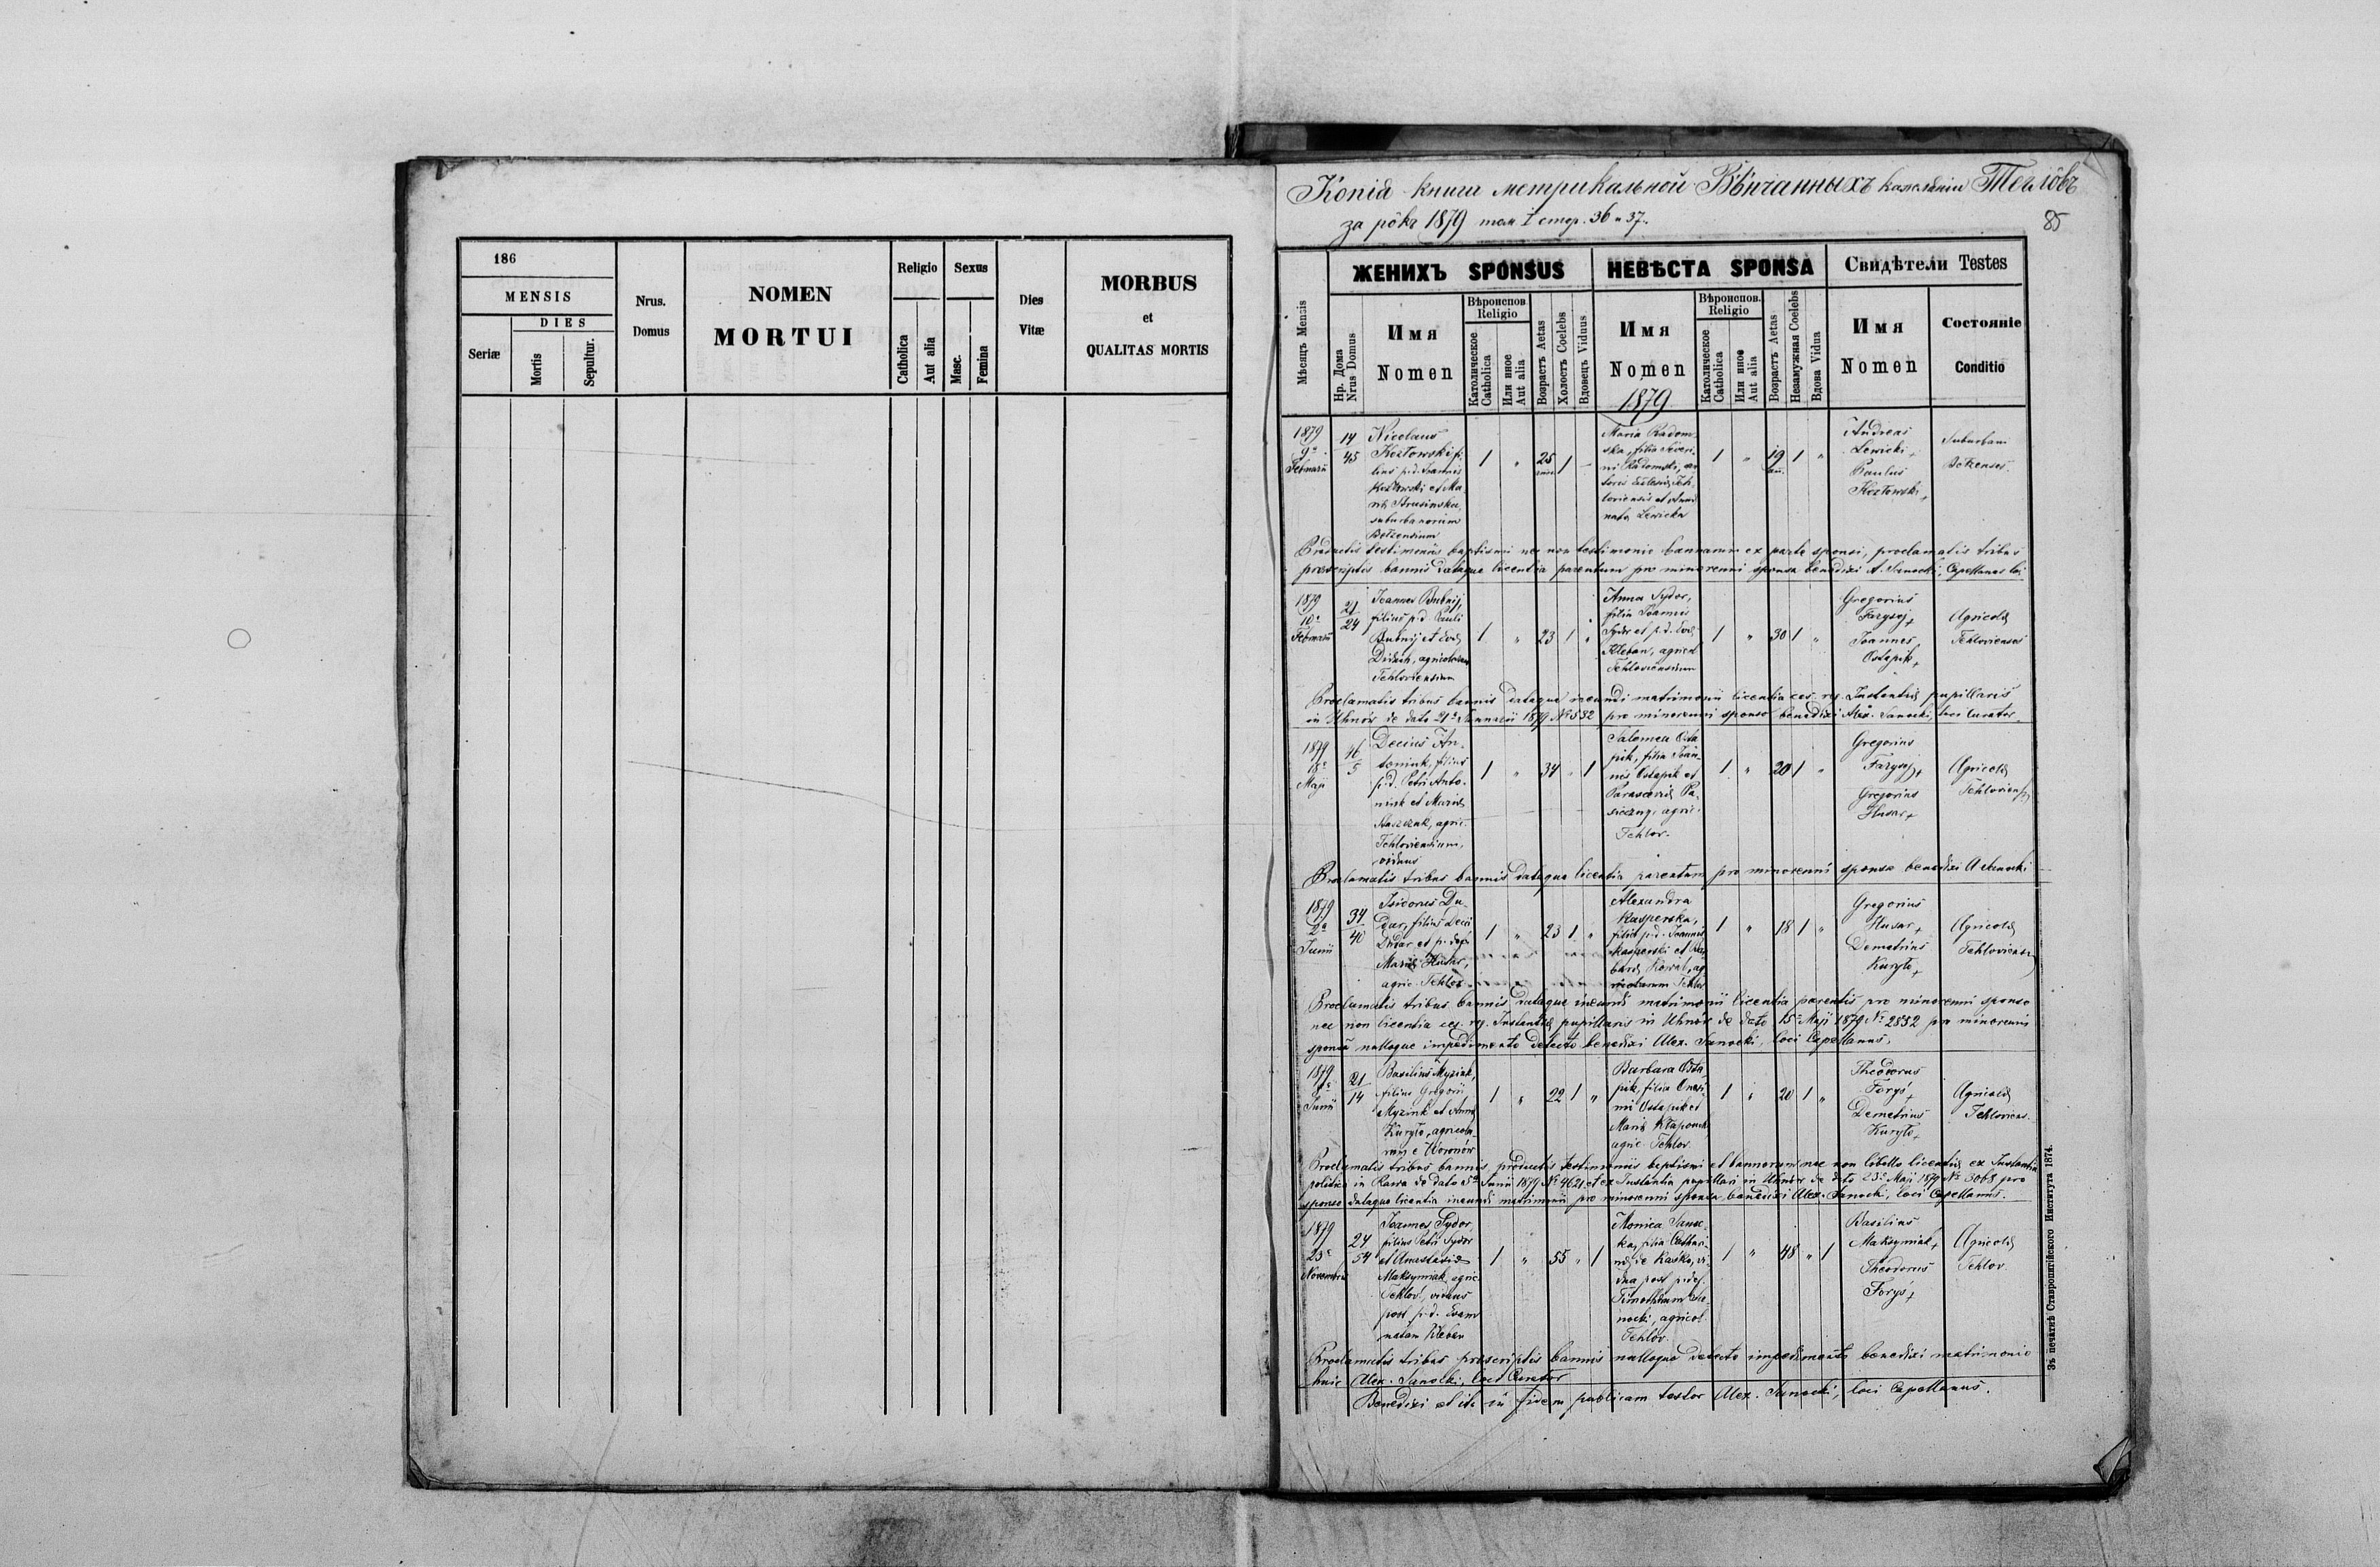 186
MENSIS
DIES
Seriæ
Mortis
Sepultur.
Nrus.
Domus
NOMEN
MORTUI
Religio
Catholica
Aut alia
Sexus
Masc.
Femina
Dies
Vitæ
MORBUS
et
QUALITAS MORTIS
Копія книги метрикальной Вѣнчанныхъ капеляніи Теглôвъ
за рôкъ 1879 том I стор. 36 и 37.
85
Мѣсяцъ Mensis
ЖЕНИХЪ SPONSUS
НЕВѢСТА SPONSA
Свидѣтели Testes
Нр. Дома
Nrus Domus
Имя
Nomen
Вѣроиспов.
Religio
Католическое
Catholica
Или иное
Aut alia
Возрастъ Aetas
Холостъ Coelebs
Вдовецъ Viduus
Имя
Nomen
1879
Вѣроиспов.
Religio
Католическое
Catholica
Или иное
Aut alia
Возрастъ Aetas
Незамужная Coelebs
Вдова Vidua
Имя
Nomen
Состоянiе
Conditio
1879
9a
Februarii
14
45
Nicolaus
Kozłowski fi-
lius p.d. Joannis
Kozłowski et Ma-
riæ Strusinska,
suburbanorum
Bełzensium
1 „ 25 ann. 1 –
Maria Radom-
ska, filia Severi-
ni Radomski, can-
toris Ecclesiæ Teh-
loviensis et Annæ
natæ Lewicka
1 „ 19 an. 1 „
Andreas
Lewicki +
Paulus
Kozłowski +
Suburbani
Bełzenses
Productis testimoniis baptismi nec non testimonio bannorum ex parte sponsi, proclamatis tribus
præscriptis bannis dataque licentia parentum pro minorenni sponsa benedixi A. Sanocki, Capellanus loci
1879
10a
Februarii
21
24
Joannes Bubnij,
filius p.d. Pauli
Bubnij et Evæ
Diduch, agricolarum
Tehloviensium
1 „ 23 1 „
Anna Sydor,
filia Joannis
Sydor et p.d. Evæ
Kleban, agricol.
Tehloviensium
1 „ 30 1 „
Gregorius
Farysej +
Joannes
Ostapik +
Agricolæ
Tehlovienses
Proclamatis tribus bannis dataque ineundi matrimonii licentia ces. reg. Instantiæ pupillaris
in Uhnów de dato 21a Januarii 1879 No 532 pro minorenni sponso benedixi Alex. Sanocki, loci Curator
1879
18a
Maji
46
5
Decius An-
toniuk, filius
p.d. Petri Anto-
niuk et Mariæ
agric.
Tehloviensium,
viduus
1 „ 34 „ 1
Salomea Osta
pik, filia Joan-
nis Ostapik et
Parasceviæ Pa-
agric.
Tehlov.
1 „ 20 1 „
Gregorius
Farysej +
Gregorius
Husar +
Agricolæ
Tehlovienses
Proclamatis tribus bannis dataque licentia parentum pro minorenni sponsa benedixi A Sanocki
1879
2a
Junii
34
40
Isidorus Du-
dar, filius Decii
Dudar et p. def.
Mariæ Husar,
agric. Tehlov.
1 „ 23 1 „
Alexandra
Kasperska,
filia p.d. Joannis
Kasperski et Bar-
baræ Kowal, ag-
ricolarum Tehlov
1 „ 18 1 „
Gregorius
Husar +
Demetrius
Kuryło +
Agricolæ
Tehlovienses
Proclamatis tribus bannis dataque ineundi matrimonii licentia parentis pro minorenni sponso
nec non licentia ces. reg. Instantiæ pupillaris in Uhnów de dato 15a Maji 1879 No 2852 pro minorenni
sponsa nulloque impedimento detecto benedixi Alex. Sanocki, loci Capellanus.
1879
Junii
21
14
Basilius Myziuk,
filius Gregorii
Myziuk et Annæ
Kuryło, agricola-
rum e Woronów
1 „ 22 1 „
Barbara Osta-
pik, filia Onesi-
mi Ostapik et
Mariæ Kłapouch
agric. Tehlov.
1 „ 20 1 „
Theodorus
Foryś +
Demetrius
Kuryło +
Agricolæ
Tehloviens.
Proclamatis tribus bannis, productis testimoniis baptismi et bannorum nec non libello licentiæ ex Instantia
politica in Rawa de dato 5a Junii 1879 No 4621 et ex Instantia pupillari in Uhnów de dato 23a Maji 1879 No 3068 pro
sponso dataque licentia ineundi matrimonii pro minorenni sponsa benedixi Alex. Sanocki, loci Capellanus.
1879
23a
Novembris
24
54
Joannes Sydor
filius Petri Sydor
et Anastasiæ
Maksymiak, agric.
Tehlov., viduus
post p.d. Evam
natam Kleban
1 „ 55 „ 1
Monica Sanoc-
ka, filia Cathari-
næ de Kaśko, vi-
dua post p. def.
Timotheum Sa-
nocki, agricol.
Tehlov.
1 „ 48 „ 1
Basilius
Maksymiak +
Theodorus
Foryś +
Agricolæ
Tehlov.
Proclamatis tribus præscriptis bannis nulloque detecto impedimento benedixi matrimonio
huic Alex. Sanocki, loci Curator
Benedixi et id in fidem publicam testor Alex. Sanocki, loci Capellanus.
Зъ печатнѣ Ставропигійского Института 1874.